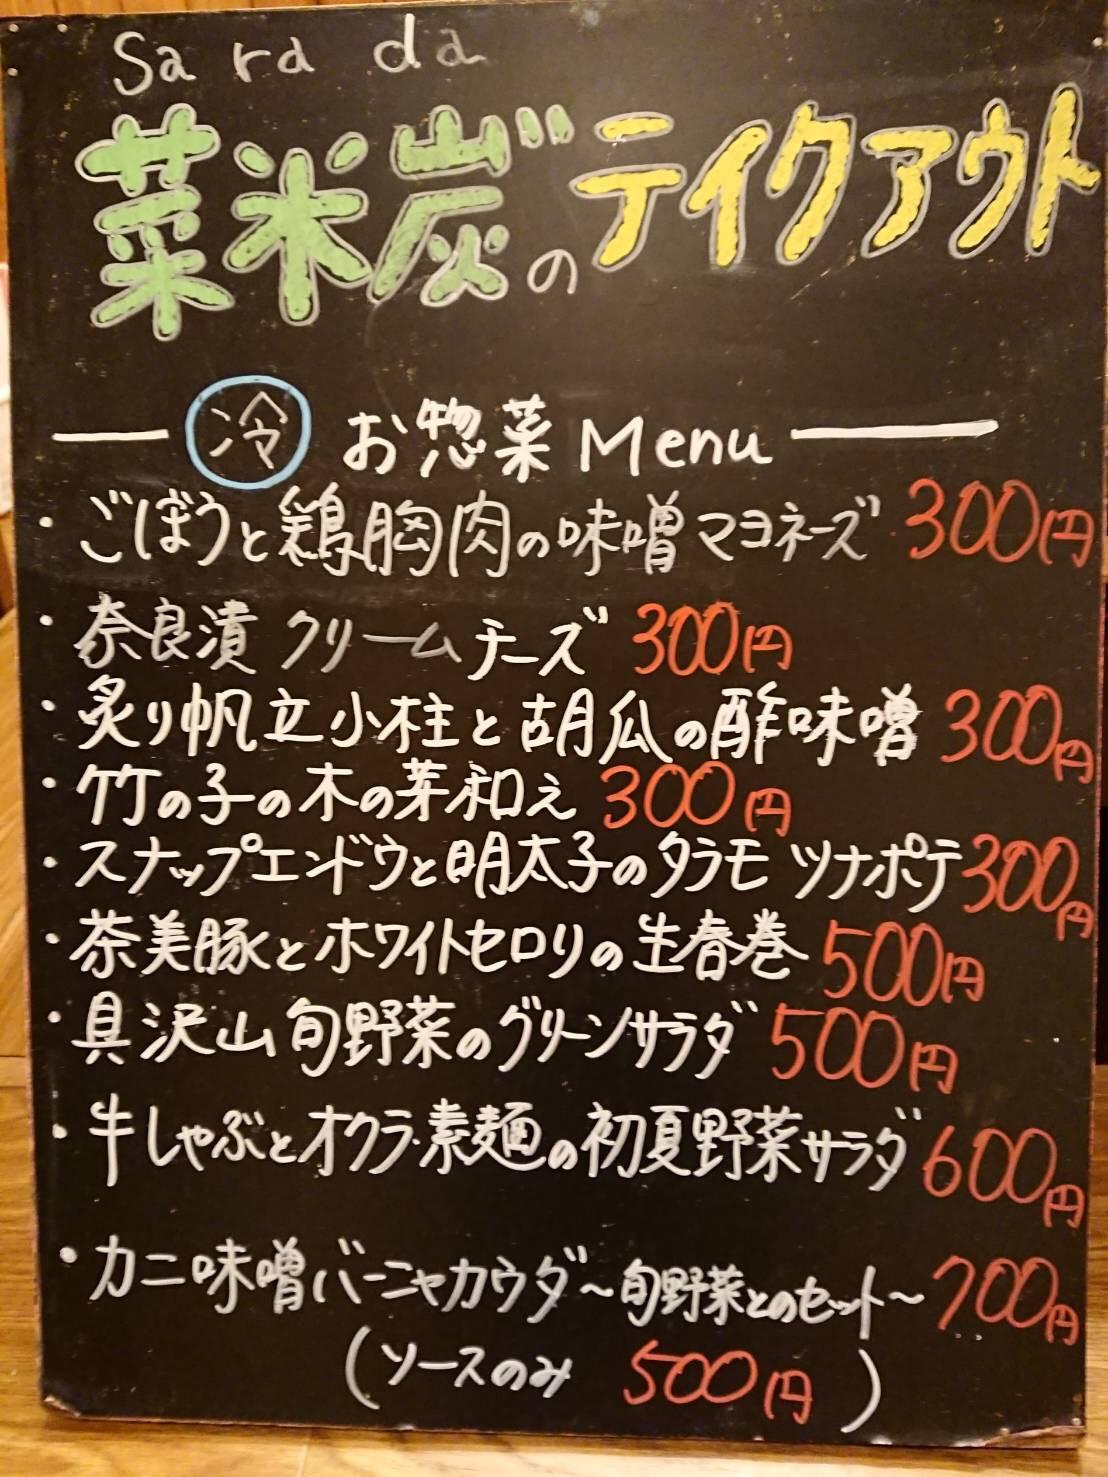 Sa ra da
菜米炭゛のテイクアウト
冷 お惣菜 Menu
・ごぼうと鶏胸肉の味噌マヨネーズ 300円
・奈良漬クリームチーズ 300円
・炙り帆立小柱と胡瓜の酢味噌 300円
・竹の子の木の芽和え 300円
・スナップエンドウと明太子のタラモ ツナポテ 300円
・茶美豚とホワイトセロリの生春巻 500円
・具沢山旬野菜のグリーンサラダ 500円
・牛しゃぶとオクラ・素麺の初夏野菜サラダ 600円
・カニ味噌バーニャカウダ〜旬野菜とのセット〜 700円
(ソースのみ 500円)